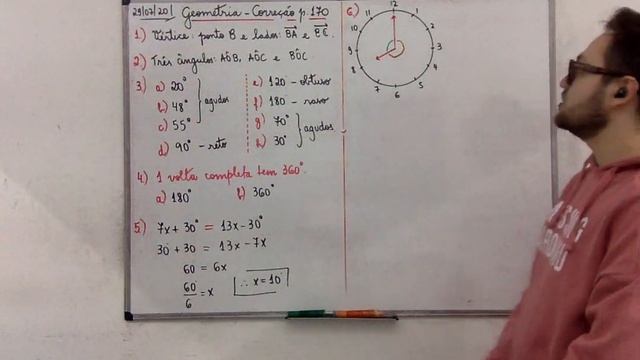 29/07/20 | Geometria - Correção p. 170
1.) Vértice: ponto B e lados: BA e BC.
2.) Três ângulos: AÔB, AÔC e BÔC.
3) a) 20°
b) 48°
c) 55°
agudos
d) 90° - reto
e) 120 - obtuso
f) 180 - raso
g) 70°
h) 30°
agudos
4) 1 volta completa tem 360°.
a) 180°
b) 360°
5.) 7x + 30° = 13x - 30°
30 + 30 = 13x - 7x
60 = 6x
60/6 = x
∴ x = 10
6)
12
1
2
3
4
5
6
7
8
9
10
11